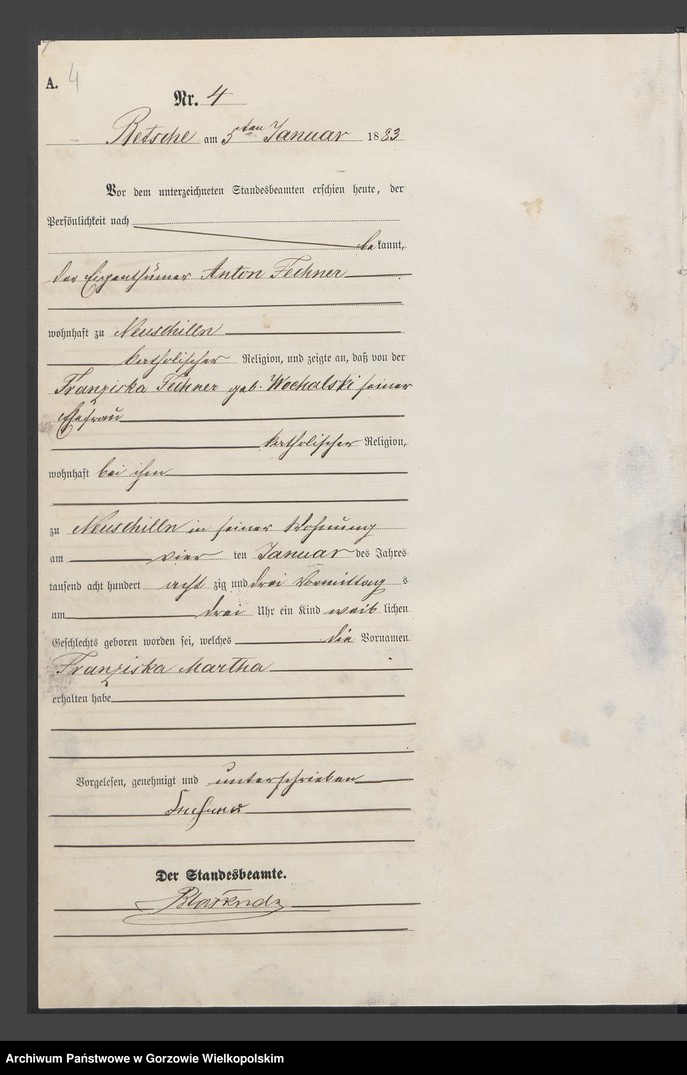 A. 4
Nr. 4
Betsche am 5ten Januar 1883
Vor dem unterzeichneten Standesbeamten erschien heute, der
Persönlichkeit nach
bekannt,
der Eigenthümer Anton Fechner
wohnhaft zu Neuschilln
katholischer Religion, und zeigte an, daß von der
Franziska Fechner geb. Wochalski seiner
Ehefrau
katholischer Religion,
wohnhaft bei ihm
zu Neuschilln in seiner Wohnung
am vier ten Januar des Jahres
tausend acht hundert acht zig und drei Vormittag s
um drei Uhr ein Kind weib lichen
Geschlechts geboren worden sei, welches die Vornamen
Franziska Martha
erhalten habe
Vorgelesen, genehmigt und unterschrieben
Der Standesbeamte.
Archiwum Państwowe w Gorzowie Wielkopolskim